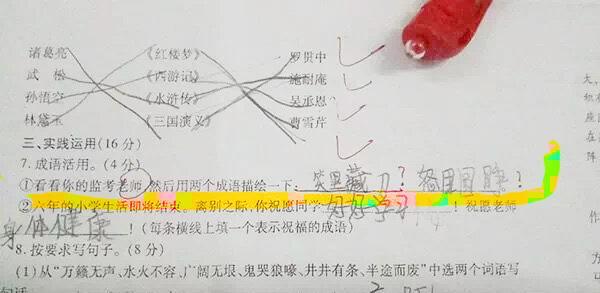 诸葛亮 《红楼梦》 罗贯中
武松 《西游记》 施耐庵
孙悟空 《水浒传》 吴承恩
林黛玉 《三国演义》 曹雪芹
三、实践运用(16分)
7. 成语活用。(4分)
①看看你的监考老师,然后用两个成语描绘一下: 笑里藏刀? 贸里冒险?
②六年的小学生活即将结束。离别之际,你祝愿同学 好好学习 !祝愿老师
身体健康 !(每条横线上填一个表示祝福的成语)
8. 按要求写句子。(8分)
(1)从“万籁无声、水火不容、广阔无垠、鬼哭狼嚎、井井有条、半途而废”中选两个词语写
句话